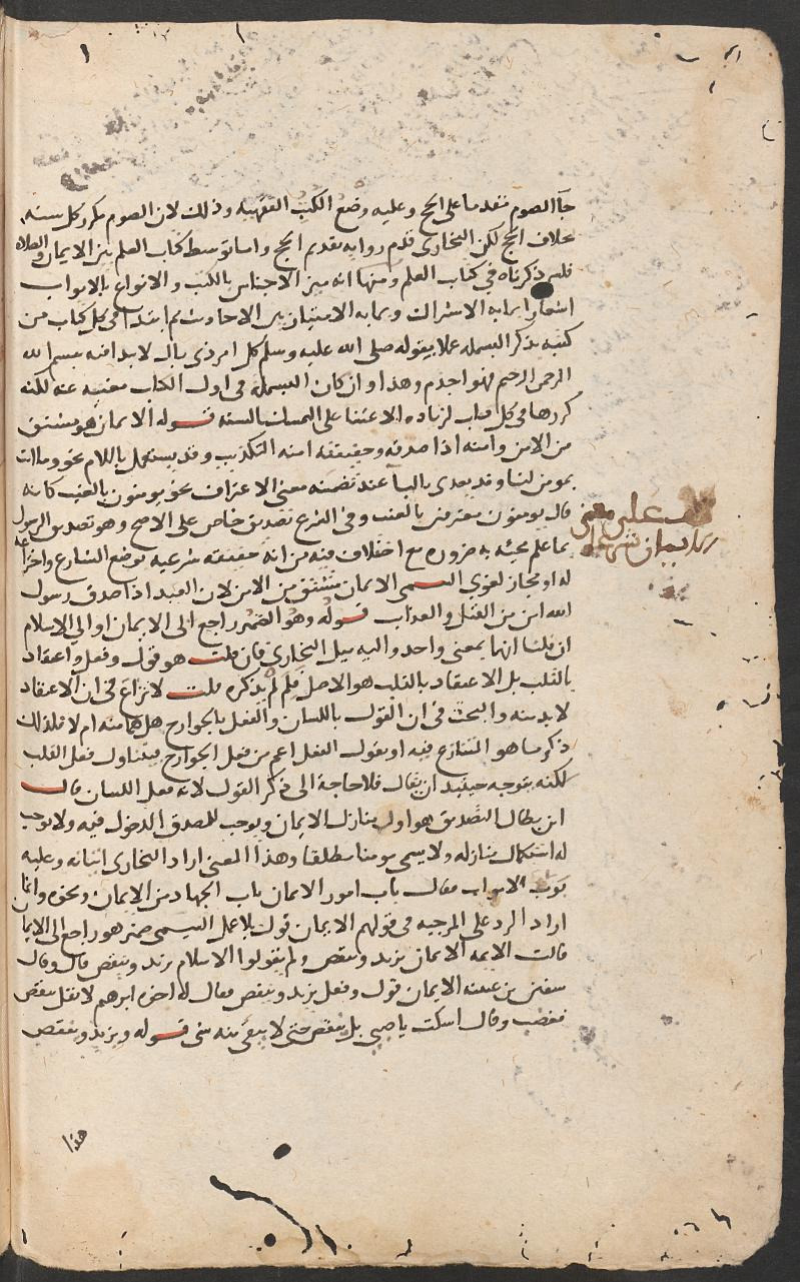 جآ الصوم مقدما على الحج وعليه وضع الكتب الفقهيه وذلك لان الصوم يتكرر كل سنه
بخلاف الحج لكن البخارى قدم روايه تقديم الحج واما توسط كتاب العلم بين الايمان والصلاه
فلم ذكرناه في كتاب العلم ومنها انه ميز الاجناس بالكتب والانواع بالابواب
اشعارا بمابه الاشتراك وبمابه الامتياز بين الاحاديث ثم ابتدا فى كل كتاب من
كتبه بذكر البسمله عملا بقوله صلى الله عليه وسلم كل امر ذى بال لا يبدا فيه ببسم الله
الرحمن الرحيم فهو اجذم وهذا وان كان البسمله فى اول الكتاب مغنيه عنه لكنه
كررها فى كل كتاب لزياده الاعتنا على التمسك بالسنه قوله الايمان هو مشتق
من الامن وامنه اذا صدقه وحقيقته امنه التكذيب وقد يستعمل باللام نحو وما انت
بمومن لنا وقد يعدى بالبا عند تضمنه معنى الاعتراف نحو يومنون بالغيب كانه
قال يومنون معترفين بالغيب وفى الشرع تصديق خاص على الاصح وهو تصديق الرسول
بما علم مجيئه به ضروره مع اختلاف فيه من انه حقيقه شرعيه بوضع الشارع واختراعه
له او مجاز لغوي التيمى الايمان مشتق من الامن لان العبد اذا صدق رسول
الله امن من القتل والعذاب قوله وهو الضمير راجع الى الايمان او الي الاسلام
ان قلنا انهما بمعنى واحد واليه ميل البخارى فان قلت هو قول وفعل واعتقاد
بالقلب بل الاعتقاد بالقلب هو الاصل فلم لم يذكره قلت لا نزاع فى ان الاعتقاد
لابد منه والبحث فى ان القول باللسان والفعل بالجوارح هل هما منه ام لا فلذلك
ذكر ما هو المتنازع فيه او نقول الفعل اعم من فعل الجوارح فيتناول فعل القلب
لكنه يتوجه حينيذ ان يقال فلا حاجة الى ذكر القول لانه فعل اللسان قال
ابن بطال التصديق هو اول منازل الايمان ويوجب للمصدق الدخول فيه ولا يوجب
له استكمال منازله ولا يسمى مومنا مطلقا وهذا المعنى اراد البخارى اثباته وعليه
بوب الابواب فقال باب امور الايمان باب الجهاد من الايمان ونحوه وانما
اراد الرد على المرجيه فى قولهم الايمان قول بلا عمل التيمى ضمير هو راجع الى الايما
قالت الايمه الايمان يزيد وينقص ولم يقولوا الاسلام يزيد وينقص قال وقال
سفين بن عيينه الايمان قول وفعل يزيد وينقص فقال له اخوه ابرهيم لا تقل ينقص
فغضب وقال اسكت يا صبي بل ينقص حتى لا يبقى منه شى قوله ويزيد وينقص
قف على معنى
الايمان شرعا
هذا